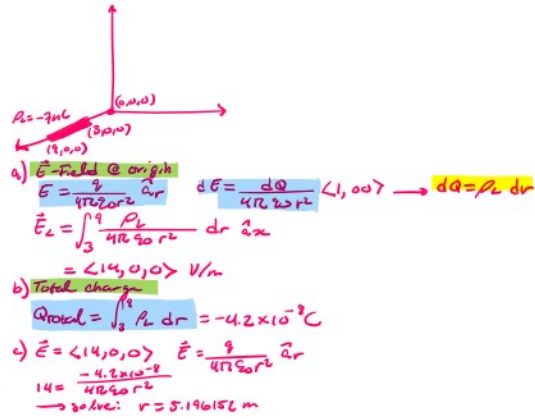 (0,0,0)
ρL=-7nC
(3,0,0)
(9,0,0)
a) E⃗-Field @ origin
E = q/(4πε0r²) âr    dE = dQ/(4πε0r²) <1,00> → dQ=ρL dr
E⃗L = ∫₃⁹ ρL/(4πε0r²) dr âx
= <14,0,0> V/m
b) Total charge
Qtotal = ∫₃⁹ ρL dr = -4.2×10⁻⁸C
c) E⃗ = <14,0,0>    E⃗ = q/(4πε0r²) âr
14 = -4.2×10⁻⁸/(4πε0r²)
→ solve: r = 5.196152 m